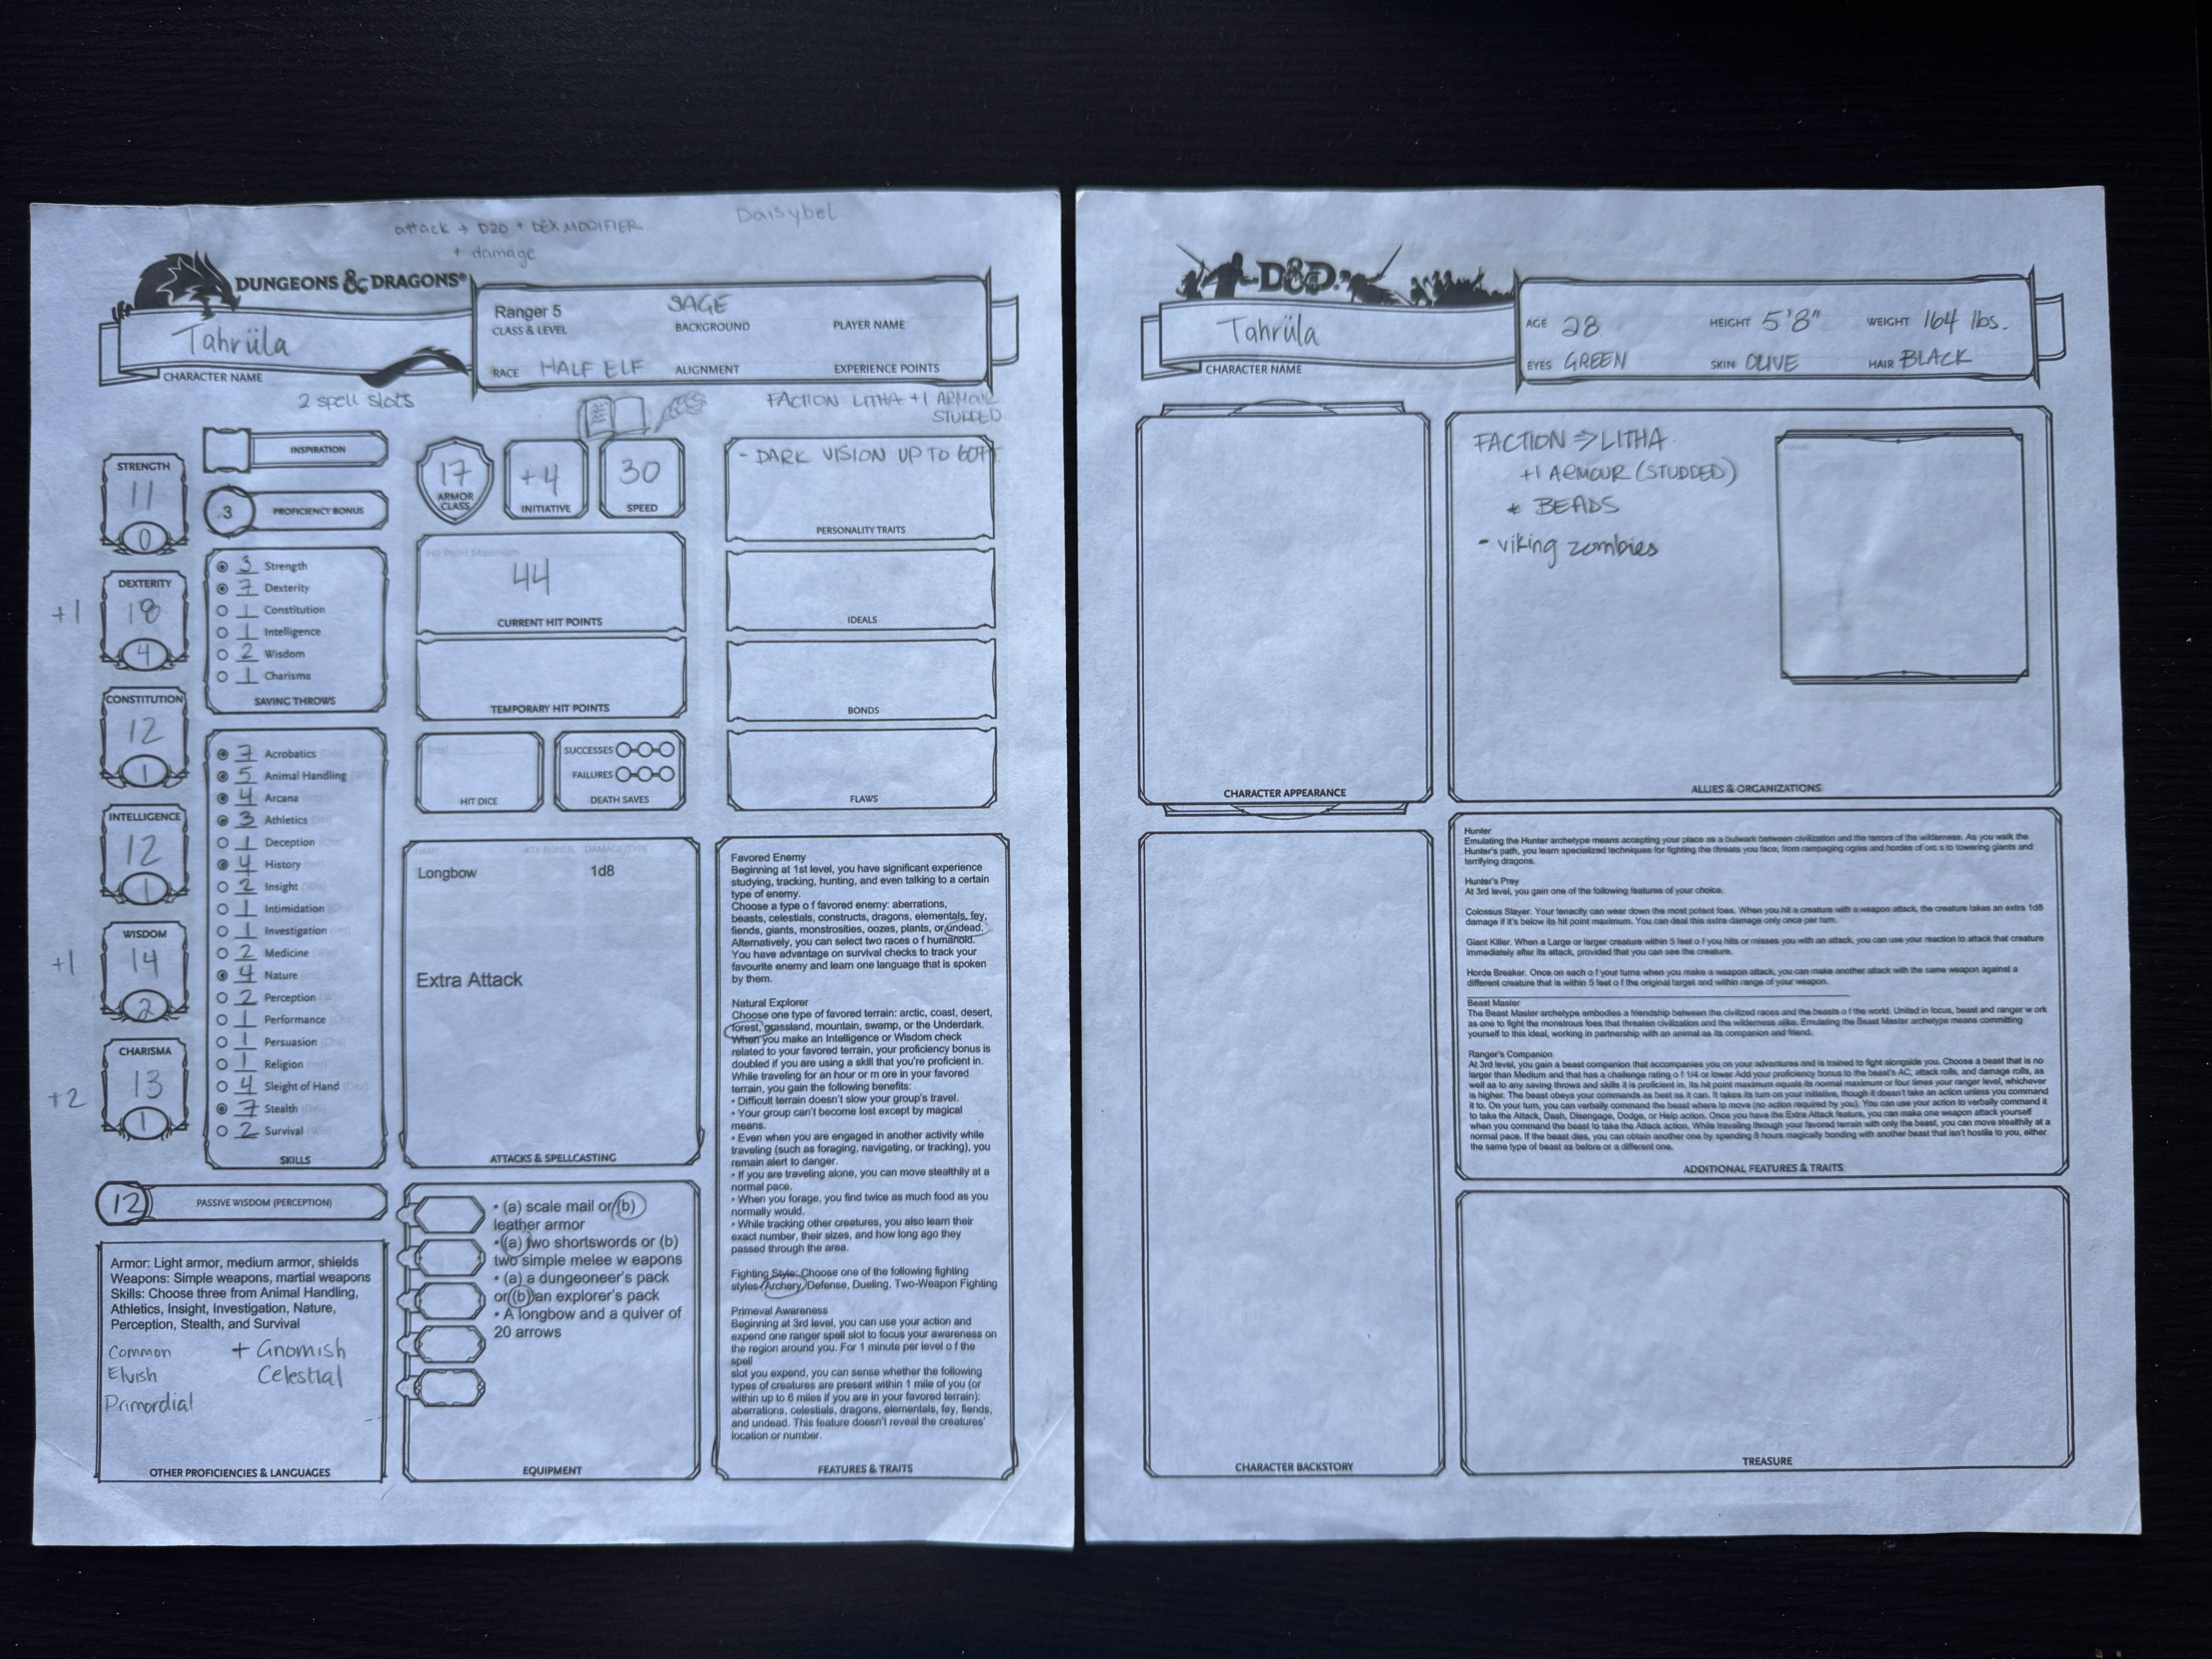 Daisybel
attack → D20 + DEX MODIFIER
+ damage
DUNGEONS & DRAGONS®
Tahrüla
CHARACTER NAME
Ranger 5
CLASS & LEVEL
SAGE
BACKGROUND
PLAYER NAME
RACE HALF ELF
ALIGNMENT
EXPERIENCE POINTS
2 spell slots
FACTION LITHA +1 ARMOUR
STUDDED
STRENGTH
11
0
+1
DEXTERITY
18
4
CONSTITUTION
12
1
INTELLIGENCE
12
1
+1
WISDOM
14
2
+2
CHARISMA
13
1
INSPIRATION
3 PROFICIENCY BONUS
3 Strength
7 Dexterity
1 Constitution
1 Intelligence
2 Wisdom
1 Charisma
SAVING THROWS
7 Acrobatics (Dex)
5 Animal Handling (Wis)
4 Arcana (Int)
3 Athletics (Str)
1 Deception (Cha)
4 History (Int)
2 Insight (Wis)
1 Intimidation (Cha)
1 Investigation (Int)
2 Medicine (Wis)
4 Nature (Int)
2 Perception (Wis)
1 Performance (Cha)
1 Persuasion (Cha)
1 Religion (Int)
4 Sleight of Hand (Dex)
7 Stealth (Dex)
2 Survival (Wis)
SKILLS
12 PASSIVE WISDOM (PERCEPTION)
Armor: Light armor, medium armor, shields
Weapons: Simple weapons, martial weapons
Skills: Choose three from Animal Handling,
Athletics, Insight, Investigation, Nature,
Perception, Stealth, and Survival
Common + Gnomish
Elvish Celestial
Primordial
OTHER PROFICIENCIES & LANGUAGES
17
ARMOR
CLASS
+4
INITIATIVE
30
SPEED
Hit Point Maximum
44
CURRENT HIT POINTS
TEMPORARY HIT POINTS
Total
HIT DICE
SUCCESSES
FAILURES
DEATH SAVES
NAME ATK BONUS DAMAGE/TYPE
Longbow 1d8
Extra Attack
ATTACKS & SPELLCASTING
• (a) scale mail or (b)
leather armor
• (a) two shortswords or (b)
two simple melee w eapons
• (a) a dungeoneer's pack
or (b) an explorer's pack
• A longbow and a quiver of
20 arrows
EQUIPMENT
- DARK VISION UP TO 60FT.
PERSONALITY TRAITS
IDEALS
BONDS
FLAWS
Favored Enemy
Beginning at 1st level, you have significant experience
studying, tracking, hunting, and even talking to a certain
type of enemy.
Choose a type o f favored enemy: aberrations,
beasts, celestials, constructs, dragons, elementals, fey,
fiends, giants, monstrosities, oozes, plants, or undead.
Alternatively, you can select two races o f humanoid.
You have advantage on survival checks to track your
favourite enemy and learn one language that is spoken
by them.
Natural Explorer
Choose one type of favored terrain: arctic, coast, desert,
forest, grassland, mountain, swamp, or the Underdark.
When you make an Intelligence or Wisdom check
related to your favored terrain, your proficiency bonus is
doubled if you are using a skill that you're proficient in.
While traveling for an hour or m ore in your favored
terrain, you gain the following benefits:
• Difficult terrain doesn't slow your group's travel.
• Your group can't become lost except by magical
means.
• Even when you are engaged in another activity while
traveling (such as foraging, navigating, or tracking), you
remain alert to danger.
• If you are traveling alone, you can move stealthily at a
normal pace.
• When you forage, you find twice as much food as you
normally would.
• While tracking other creatures, you also learn their
exact number, their sizes, and how long ago they
passed through the area.
Fighting Style: Choose one of the following fighting
styles: Archery, Defense, Dueling, Two-Weapon Fighting
Primeval Awareness
Beginning at 3rd level, you can use your action and
expend one ranger spell slot to focus your awareness on
the region around you. For 1 minute per level o f the
spell
slot you expend, you can sense whether the following
types of creatures are present within 1 mile of you (or
within up to 6 miles if you are in your favored terrain):
aberrations, celestials, dragons, elementals, fey, fiends,
and undead. This feature doesn't reveal the creatures'
location or number.
FEATURES & TRAITS
D&D
Tahrüla
CHARACTER NAME
AGE 28
HEIGHT 5'8"
WEIGHT 164 lbs.
EYES GREEN
SKIN OLIVE
HAIR BLACK
CHARACTER APPEARANCE
FACTION ⇒ LITHA
+1 ARMOUR (STUDDED)
* BEADS
- viking zombies
NAME
ALLIES & ORGANIZATIONS
CHARACTER BACKSTORY
Hunter
Emulating the Hunter archetype means accepting your place as a bulwark between civilization and the terrors of the wilderness. As you walk the
Hunter's path, you learn specialized techniques for fighting the threats you face, from rampaging ogres and hordes of orc s to towering giants and
terrifying dragons.
Hunter's Prey
At 3rd level, you gain one of the following features of your choice.
Colossus Slayer. Your tenacity can wear down the most potent foes. When you hit a creature with a weapon attack, the creature takes an extra 1d8
damage if it's below its hit point maximum. You can deal this extra damage only once per turn.
Giant Killer. When a Large or larger creature within 5 feet o f you hits or misses you with an attack, you can use your reaction to attack that creature
immediately after its attack, provided that you can see the creature.
Horde Breaker. Once on each o f your turns when you make a weapon attack, you can make another attack with the same weapon against a
different creature that is within 5 feet o f the original target and within range of your weapon.
Beast Master
The Beast Master archetype embodies a friendship between the civilized races and the beasts o f the world. United in focus, beast and ranger w ork
as one to fight the monstrous foes that threaten civilization and the wilderness alike. Emulating the Beast Master archetype means committing
yourself to this ideal, working in partnership with an animal as its companion and friend.
Ranger's Companion
At 3rd level, you gain a beast companion that accompanies you on your adventures and is trained to fight alongside you. Choose a beast that is no
larger than Medium and that has a challenge rating o f 1/4 or lower Add your proficiency bonus to the beast's AC, attack rolls, and damage rolls, as
well as to any saving throws and skills it is proficient in. Its hit point maximum equals its normal maximum or four times your ranger level, whichever
is higher. The beast obeys your commands as best as it can. It takes its turn on your initiative, though it doesn't take an action unless you command
it to. On your turn, you can verbally command the beast where to move (no action required by you). You can use your action to verbally command it
to take the Attack, Dash, Disengage, Dodge, or Help action. Once you have the Extra Attack feature, you can make one weapon attack yourself
when you command the beast to take the Attack action. While traveling through your favored terrain with only the beast, you can move stealthily at a
normal pace. If the beast dies, you can obtain another one by spending 8 hours magically bonding with another beast that isn't hostile to you, either
the same type of beast as before or a different one.
ADDITIONAL FEATURES & TRAITS
TREASURE